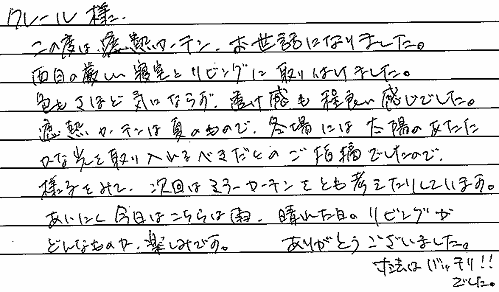 クレール様
この度は、遮熱カーテン、お世話になりました。
西日の厳しい寝室とリビングに取り付けました。
色もさほど気にならず、透け感も程良い感じでした。
遮熱カーテンは夏のもので、冬場には太陽のあたた
かな光を取り入れるべきだとのご指摘でしたので、
様子をみて、次回はミラーカーテンをとも考えたりしています。
あいにく今日はこちらは雨、晴れた日のリビングが
どんなものか、楽しみです。 ありがとうございました。
寸法はバッチリ!!
でした。